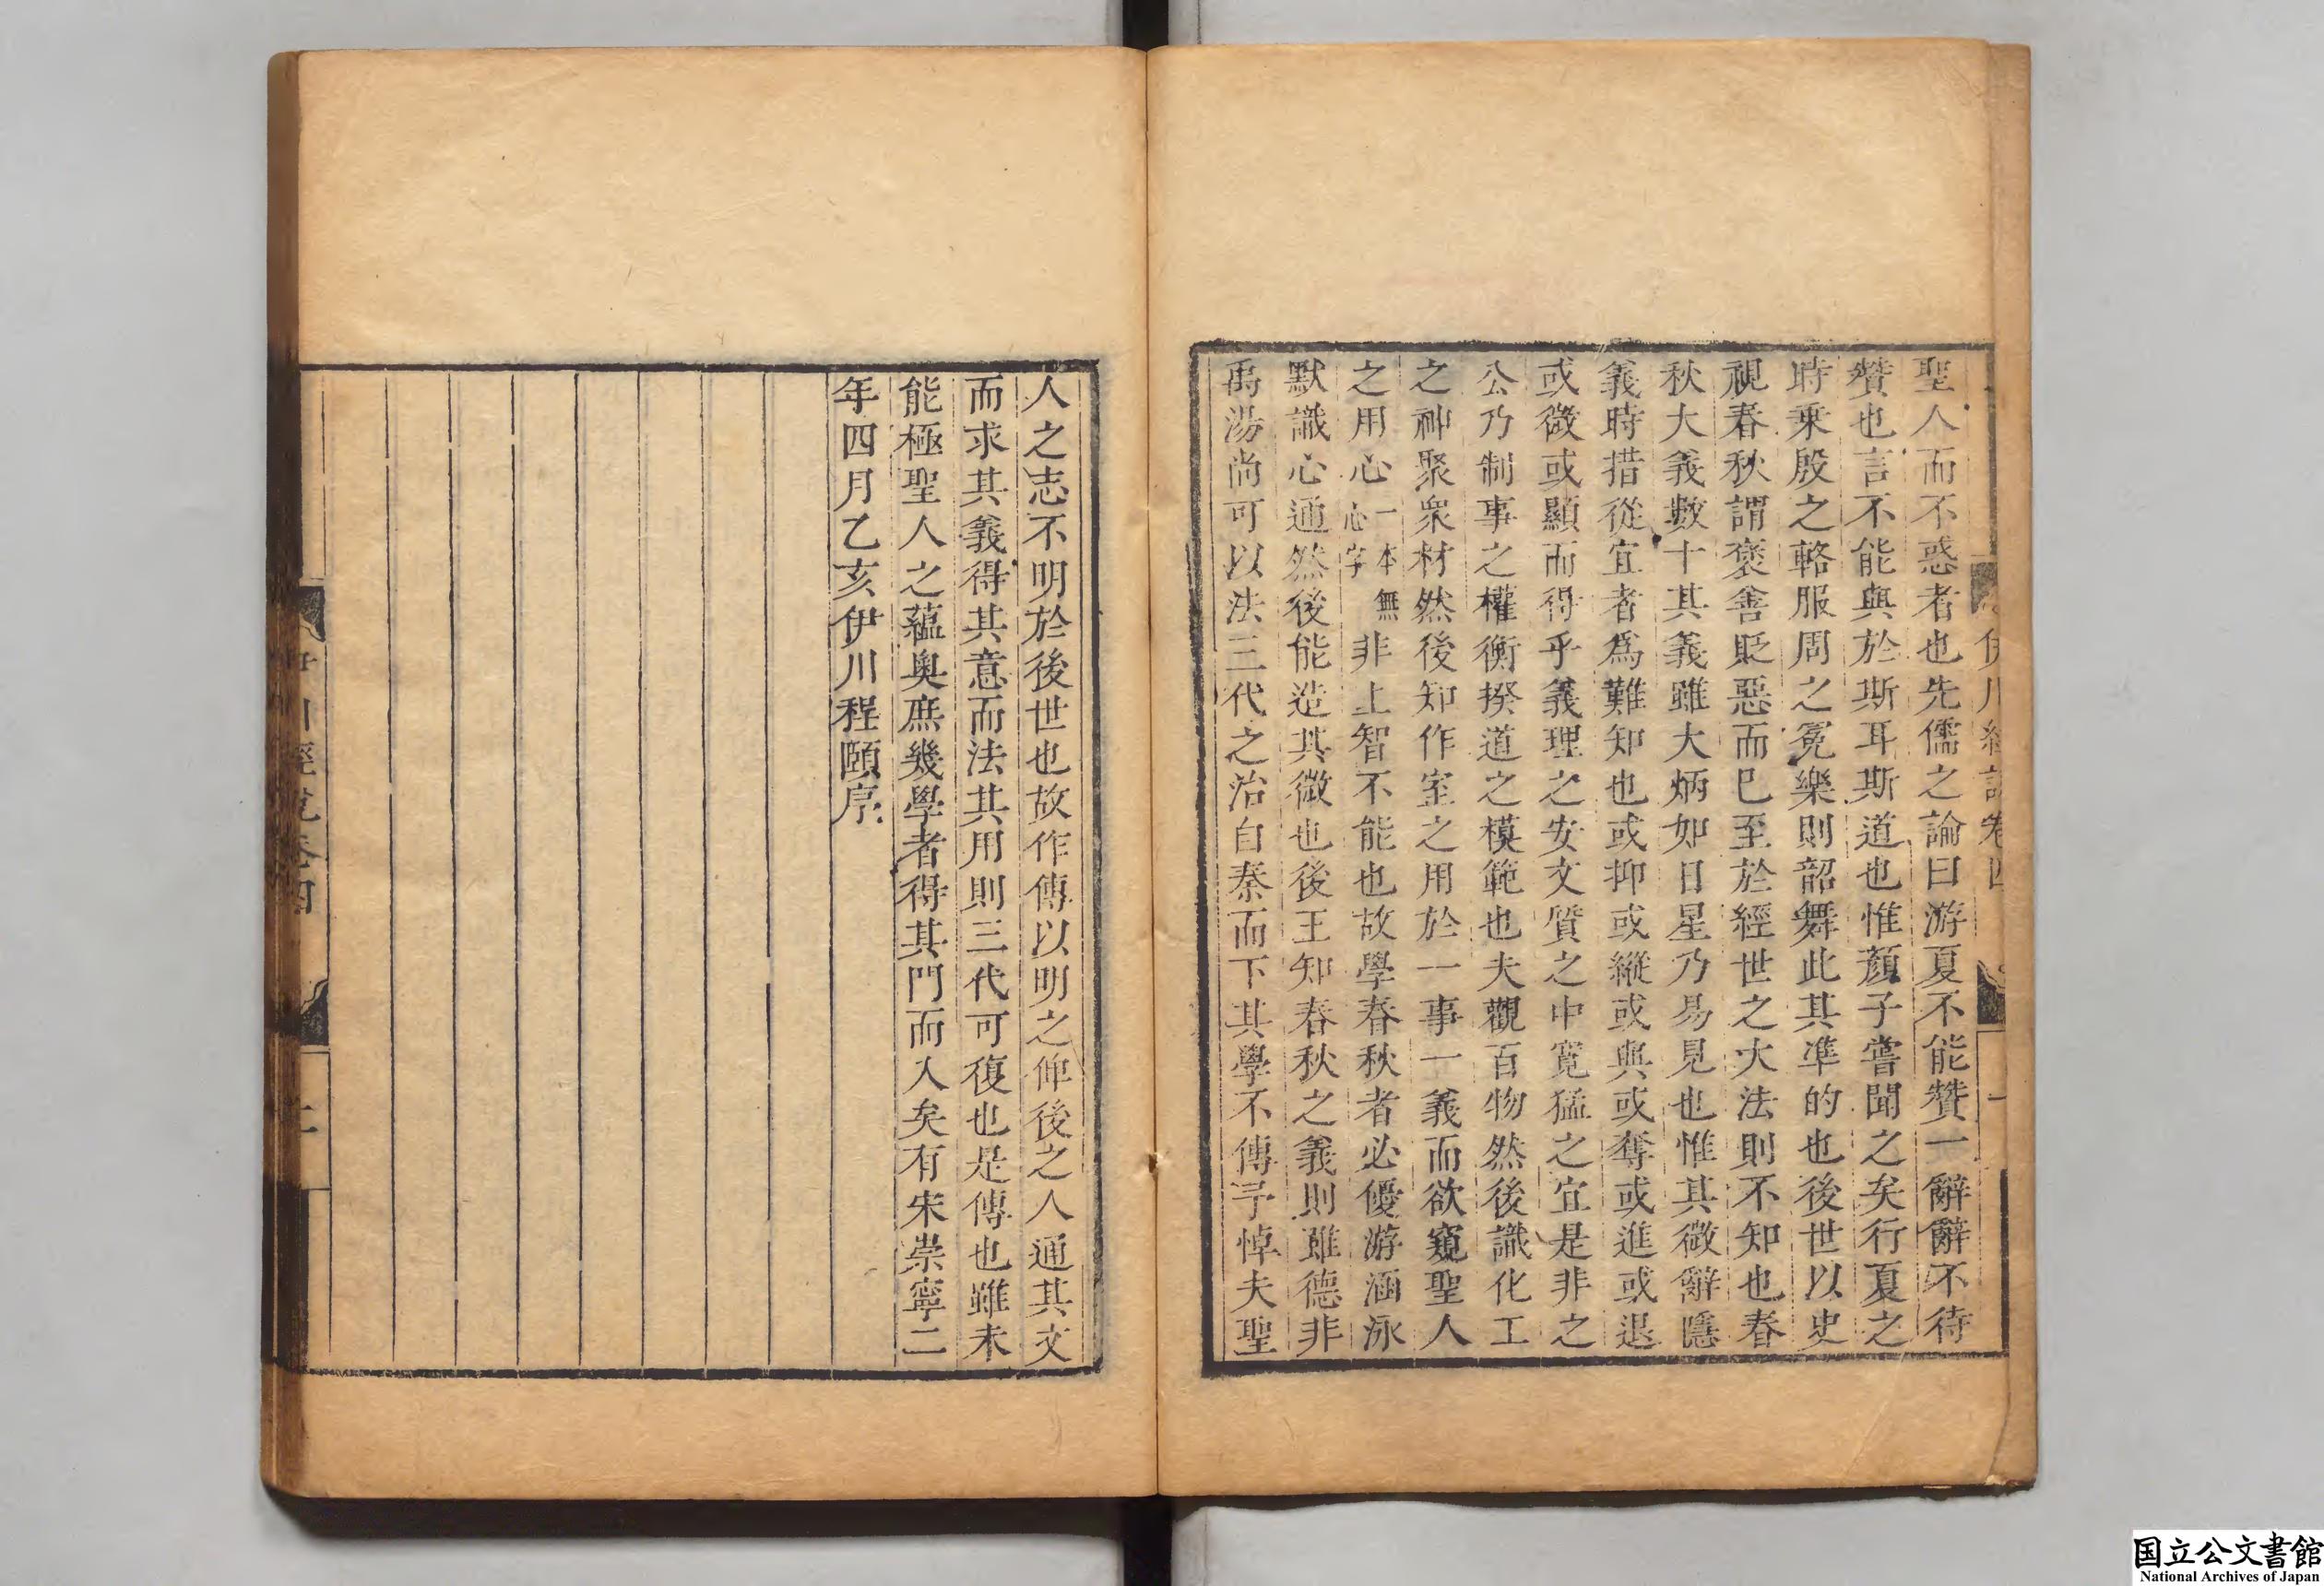 聖人而不惑者也先儒之論曰游夏不能贊一辭辭不待
贊也言不能與於斯耳斯道也惟顏子嘗聞之矣行夏之
時乘殷之輅服周之冕樂則韶舞此其凖的也後世以史
視春秋謂褒善貶惡而已至於經世之大法則不知也春
秋大義數十其義雖大炳如日星乃易見也惟其微辭隱
義時措從宜者為難知也或抑或縱或與或奪或進或退
或微或顯而得乎義理之安文質之中寬猛之宜是非之
公乃制事之權衡揆道之模範也夫觀百物然後識化工
之神聚衆材然後知作室之用於一事一義而欲窺聖人
之用心一本無心字非上智不能也故學春秋者必優游涵泳
默識心通然後能造其微也後王知春秋之義則雖德非
禹湯尚可以法三代之治自秦而下其學不傳予悼夫聖
人之志不明於後世也故作傳以明之俾後之人通其文
而求其義得其意而法其用則三代可復也是傳也雖未
能極聖人之蘊奧庶幾學者得其門而入矣有宋崇寧二
年四月乙亥伊川程頤序
伊川經說卷四
一
伊川經說卷四
二
国立公文書館
National Archives of Japan